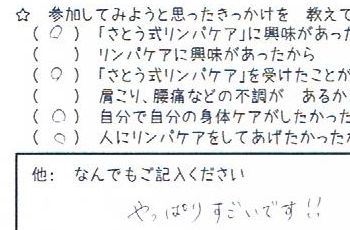 ☆ 参加してみようと思ったきっかけを 教えて
( ○ ) 「さとう式リンパケア」に興味があっ
( ) リンパケアに興味があったから
( ○ ) 「さとう式リンパケア」を受けたことが
( ) 肩こり、腰痛などの不調が あるか
( ○ ) 自分で自分の身体ケアがしたかった
( ○ ) 人にリンパケアをしてあげたかった
他: なんでもご記入ください
やっぱりすごいです!!